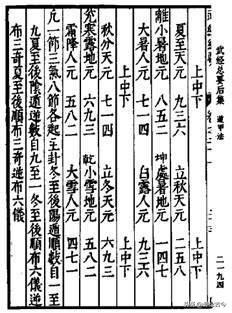 武经总要后集 遁甲法
二一九四
上中下 上中下
夏至天元 九三六 立秋天元 二五八
離小暑地元 八五二 坤處暑地元 一四七
大暑人元 七一四 白露人元 九三六
上中下 上中下
秋分天元 七一四 立冬天元 六九三
兌寒露地元 六九三 乾小雪地元 五八二
霜降人元 五八二 大雪人元 四七一
凡一節三氣八節各起主卦冬至後陽遁順數自一至
九夏至後陰遁逆數自九至一冬至後順布六儀逆
布三奇夏至後順布三奇逆布六儀